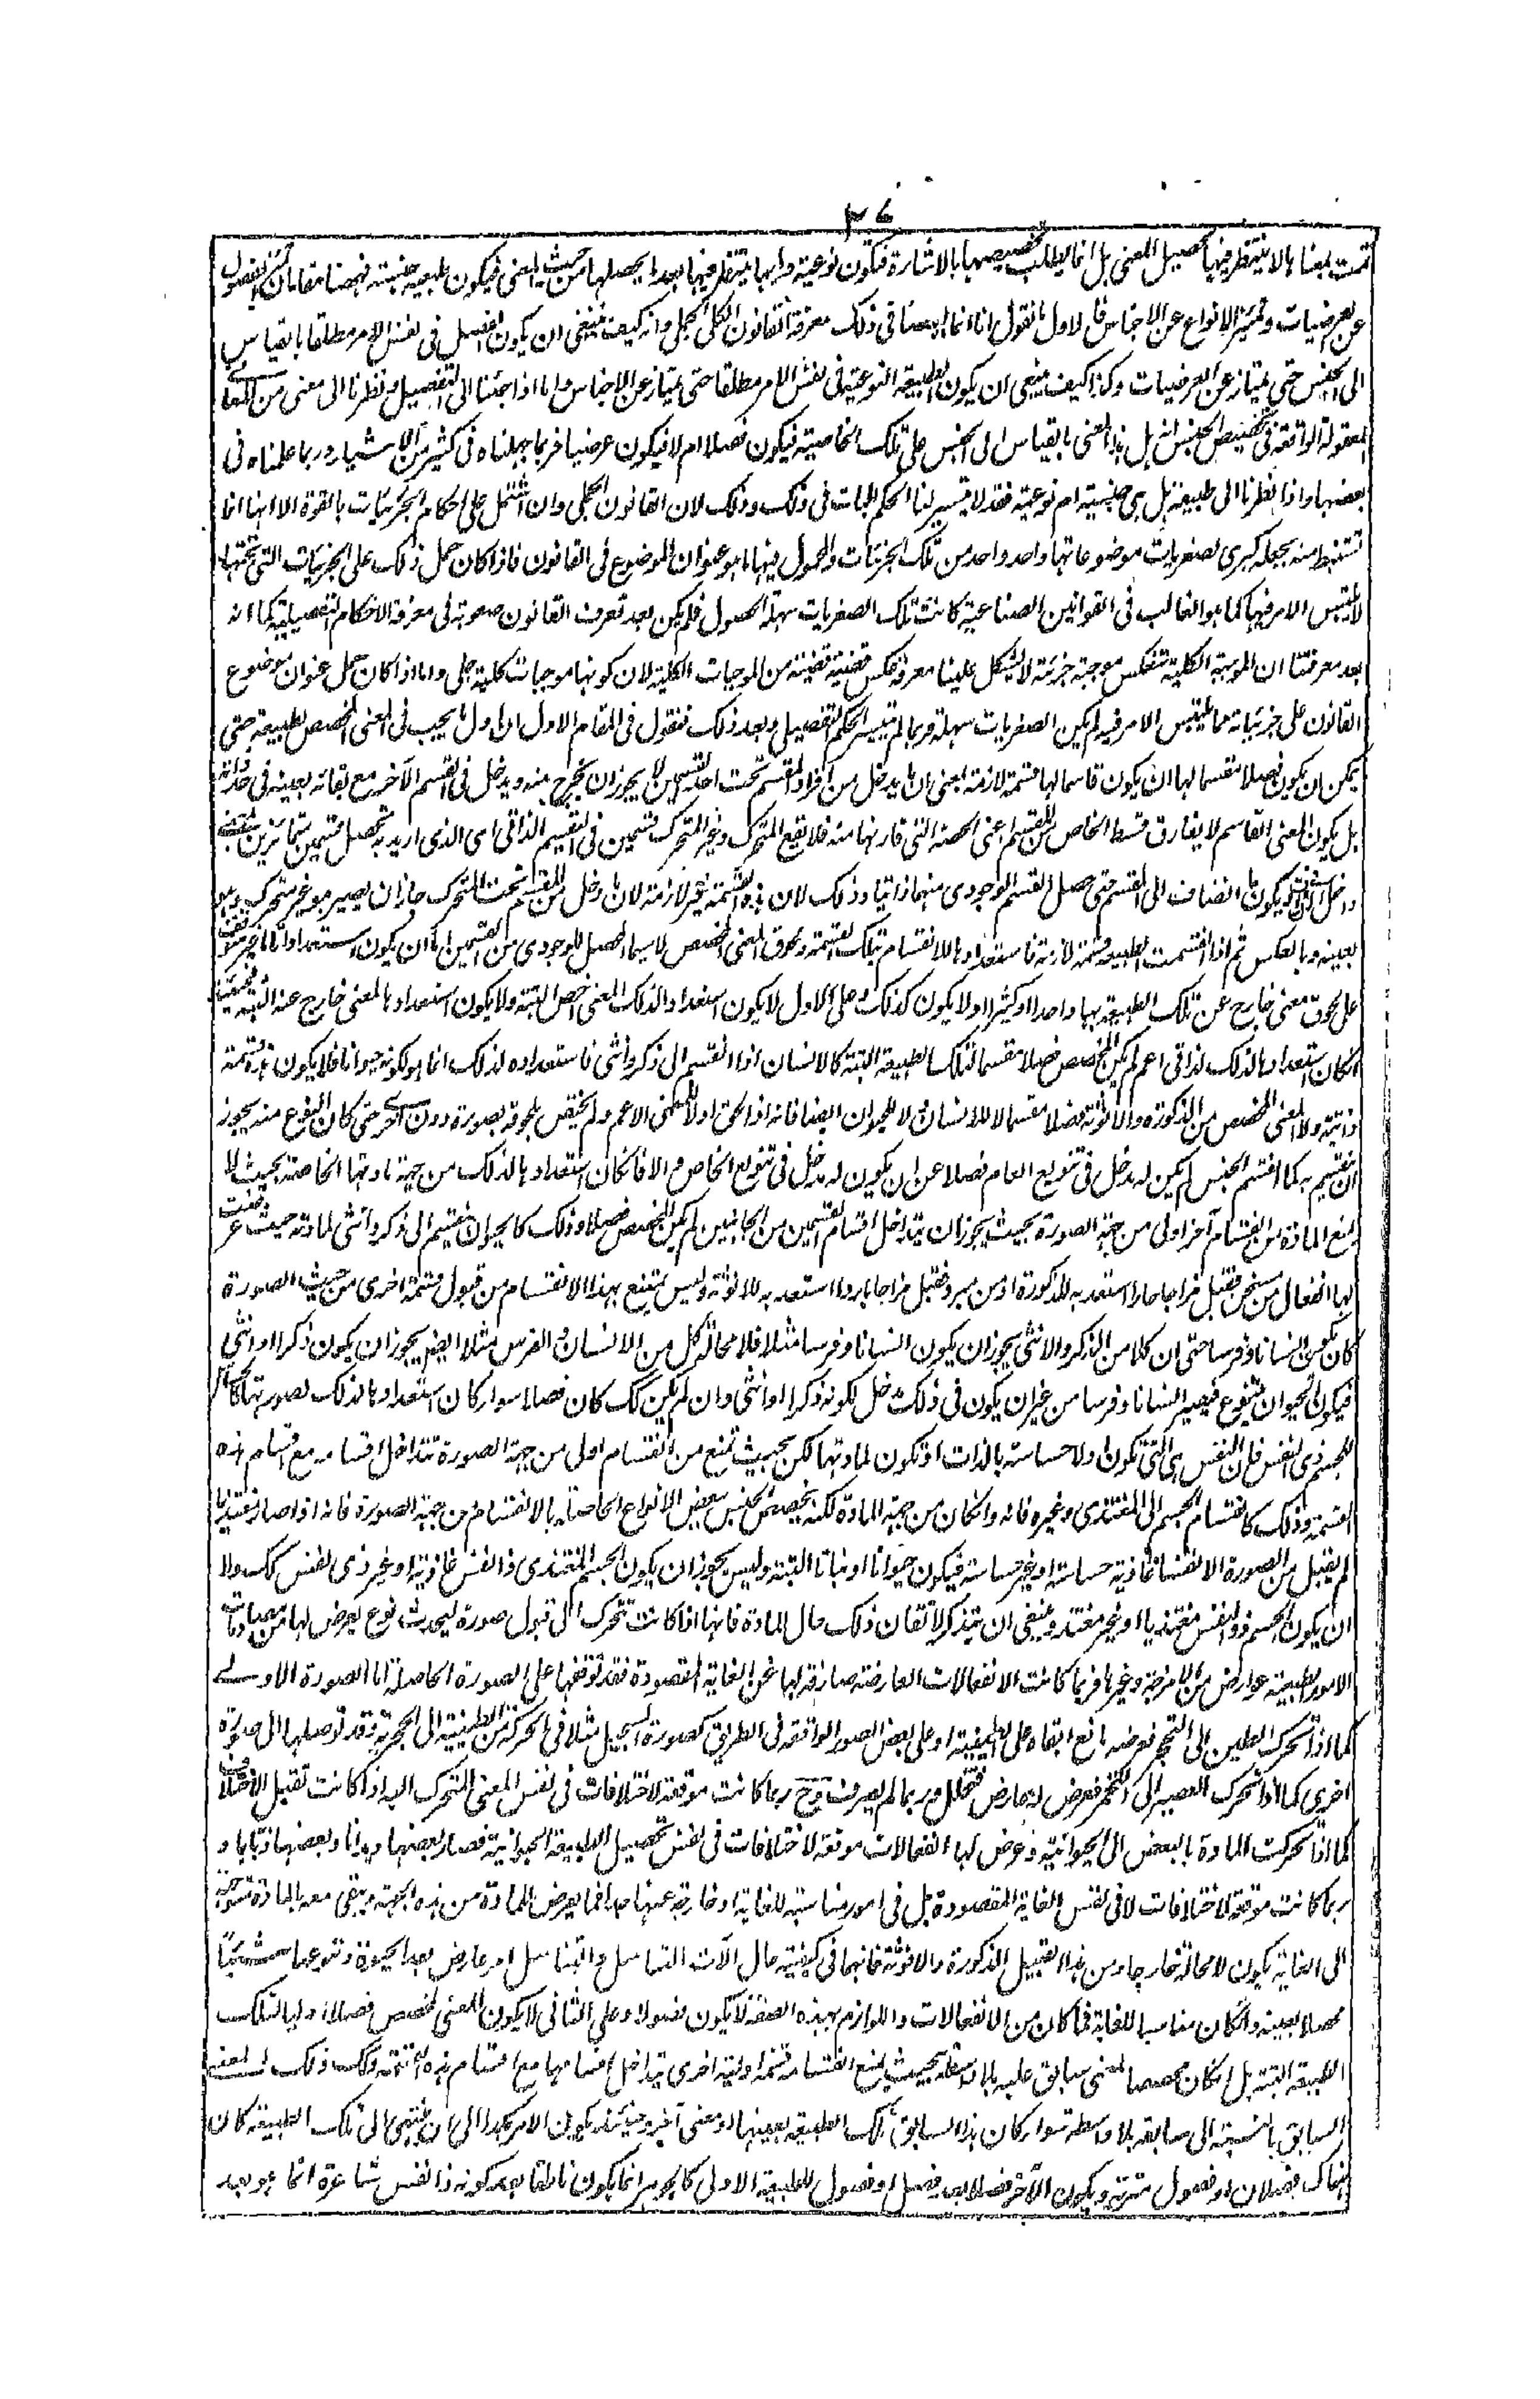 ٣٤
تمت بمعناها لا ينتظر فيها تحصيل المعنى بل انما يطلب تخصيصها بالاشارة فتكون نوعية وايها ينتظر فيها بعد ما يحصلها من حيث المعنى فيكون طبيعة جنسية فههنا مقامان تميز الفصول
عن العرضيات وتميز الانواع عن الاجناس فالاول نقول انا انما ايضا فى ذلك معرفة القانون الكلى الجملى وانه كيف ينبغى ان يكون الفصل فى نفس الامر مطلقا بالقياس
الى الجنس حتى يمتاز عن العرضيات وكذا كيف ينبغى ان يكون الطبيعة النوعية فى نفس الامر مطلقا حتى يمتاز عن الاجناس واما اذا جئنا الى التفصيل ونظرنا الى معنى من المعانى
المعقولة الواقعة فى تخصيص الجنس انه هل هذا المعنى بالقياس الى الجنس على تلك الخاصية فيكون فصلا ام لا فيكون عرضيا فربما جهلناه فى كثير من الاشياء وربما علمناه فى
بعضها واذا نظرنا الى طبيعة هل هى جنسية ام نوعية فقد لا يتيسر لنا الحكم البات فى ذلك وذلك لان القانون الجملى وان اشتمل على احكام الجزئيات بالقوة الا انها انما
تستنبط منه بجعله كبرى لصغريات موضوعاتها واحد واحد من تلك الجزئيات والمحمول فيها ما هو عنوان الموضوع فى القانون فاذا كان حمل ذلك على الجزئيات التى تحتها
لا يلتبس الامر فيها كما هو الغالب فى القوانين الصناعية كانت تلك الصغريات سهلة الحصول فلم يكن بعد تعرف القانون صعوبة فى معرفة الاحكام التفصيلية كما انه
بعد معرفتنا ان الموجبة الكلية تنعكس موجبة جزئية لا يشكل علينا معرفة عكس قضية قضية من الموجبات الكلية لان كونها موجبات كلية جلى واما اذا كان حمل عنوان موضوع
القانون على جزئياته مما يلتبس الامر فيه لم يكن الصغريات سهلة فربما لم يتيسر الحكم التفصيلى وبعد ذلك فنقول فى المقام الاول ان اول ما يجب فى المعنى المخصص لطبيعة حتى
يمكن ان يكون فصلا مقسما لها ان يكون قاسما لها قسمة لازمة اعنى ان ما يدخل من افراد المقسم تحت احد القسمين لا يجوز ان يخرج منه ويدخل فى القسم الآخر مع بقائه بعينه فى حد ذاته
بل يكون المعنى القاسم لا يفارق قسط الخاص من المقسم اعنى الحصة التى قارنها منه فلا يقع المتحرك وغير المتحرك قسمين فى التقسيم الذاتى اى الذى اريد به تحصل قسمين متمايزين
بعينه وبالعكس ثم اذا انقسمت الطبيعة قسمة لازمة فاستعدادها للانقسام بتلك القسمة ولحوق المعنى المخصص لا سيما المحصل للوجودى من القسمين اما ان يكون استعدادا
على لحوق معنى خارج عن تلك الطبيعة بها واحدا او كثيرا او لا يكون كذلك وعلى الاول لا يكون استعداد ذلك المعنى اخص البتة ولا يكون استعدادها لمعنى خارج عنه البتة
ان كان استعدادها لذلك لذاتى اعم لم يكن المخصص فصلا مقسما لتلك الطبيعة البتة كالانسان اذا انقسم الى ذكر وانثى فاستعداده لذلك انما هو لكونه حيوانا فلا يكون هذه قسمة
ذاتية ولا المعنى المخصص من الذكورة والانوثة فصلا مقسما لا للانسان ولا للحيوان ايضا فانه اذا لحق اولا للمعنى الاعم ولم يختص بلحوقه بصورة دون اخرى حتى كان النوع منه يجوز
ان ينقسم به كما انقسم الجنس لم يكن له مدخل فى تنويع العام فضلا عن ان يكون له مدخل فى تنويع الخاص والا فان كان استعدادها لذلك من جهة مادتها الخاصة بحيث لا
يمنع المادة من انقسام آخر اولى من جهة الصورة بحيث يجوز ان يتداخل اقسام القسمين من الجانبين لم يكن المخصص فصلا وذلك كالحيوان ينقسم الى ذكر وانثى لمادته حيث عرضت
لها انفعال من مسخن فقبل مزاجا حارا استعد به للذكورة او من مبرد فقبل مزاجا باردا استعد به للانوثة وليس يمتنع بهذا الانقسام من قبول قسمة اخرى من حيث الصورة
كان يكون انسانا وفرسا حتى ان كلا من الذكر والانثى يجوز ان يكون انسانا وفرسا مثلا فلا محالة كل من الانسان والفرس مثلا ايضا يجوز ان يكون ذكرا او انثى
فيكون الحيوان يتنوع فيصير انسانا وفرسا من غير ان يكون فى ذلك مدخل لكونه ذكرا او انثى وان لم يكن كك كان فصلا سواء كان استعدادها لذلك لصورتها
للجسم ذى النفس فان النفس هى التى تكون اولا حساسة بالذات او تكون لمادتها لكن بحيث تمنع من انقسام اولى من جهة الصورة تتداخل اقسامه مع اقسام هذه
القسمة وذلك كانقسام الجسم الى المغتذى وغيره فانه وان كان من جهة المادة لكنه يخصص الجنس ببعض الانواع الحاصلة بالانقسام من جهة الصورة فانه اذا صار مغتذيا
لم يقبل من الصورة الا نفسا غاذية حساسة او غير حساسة فيكون حيوانا او نباتا البتة وليس يجوز ان يكون الجسم المغتذى ذا نفس غاذية او غير ذى نفس كك ولا
ان يكون الجسم ذو النفس مغتذيا او غير مغتذ وينبغى ان يتذكر لاتقان ذلك حال المادة فانها اذا كانت تتحرك الى قبول صورة ليحدث نوع يعرض لها من
الامور الطبيعية عوارض من الامزجة وغيرها فربما كانت الانفعالات العارضة صارفة لها عن الغاية المقصودة فقد توقفها على الصورة الحاصلة اما الصورة الاولى
كما اذا تحرك الطين الى التحجر فعرضه مانع ابقاه على الطينية او على بعض الصور الواقعة فى الطريق كصورة السجيل مثلا فى الحركة من الطينية الى الحجرية وقد توصلها الى صورة
اخرى كما اذا تحرك العصير الى التخمر فعرض له عارض فتخلل وربما لم يصرف وح ربما كانت موقعة لاختلافات فى نفس المعنى المتحرك اليه اذا كانت تقبل الاختلاف
كما اذا تحركت المادة بالبعض الى الحيوانية وعرض لها انفعالات موقعة لاختلافات فى نفس تحصيل الطبيعة الحيوانية فصار بعضها ديدانا وبعضها ذبابا و
ربما كانت موقعة لاختلافات لا فى نفس الغاية المقصودة بل فى امور مناسبة للغاية او خارجة عنها جدا فما يعرض للمادة من هذه الجهة ويبقى معه المادة متوجهة
الى الغاية يكون لا محالة خارجا ومن هذا القبيل الذكورة والانوثة فانهما فى كيفية حال آلات التناسل والتناسل امر عارض بعد الحيوة وتنوعها شيئا
محصلا بعينه وان كان مناسبا للغاية فما كان من الانفعالات واللوازم بهذه الصفة لا يكون فصولا وعلى الثانى لا يكون المعنى المخصص فصلا اوليا لتلك
الطبيعة البتة بل ان كان مخصصا لمعنى سابق عليه بلا واسطة بحيث يمنع انقسامه قسمة اولية اخرى يتداخل اقسامها مع اقسام هذه القسمة وكك ذلك المعنى
السابق بالنسبة الى سابقه بلا واسطة سواء كان هذا السابق تلك الطبيعة بعينها او معنى آخر وحينئذ يكون الامر هكذا الى ان ينتهى الى تلك الطبيعة كان
هناك فصلان او فصول مترتبة ويكون الآخر فصلا بعد فصل او فصول للطبيعة الاولى كالجوهر انما يكون ناطقا بعد كونه ذا نفس شاعرة انما هو بعد